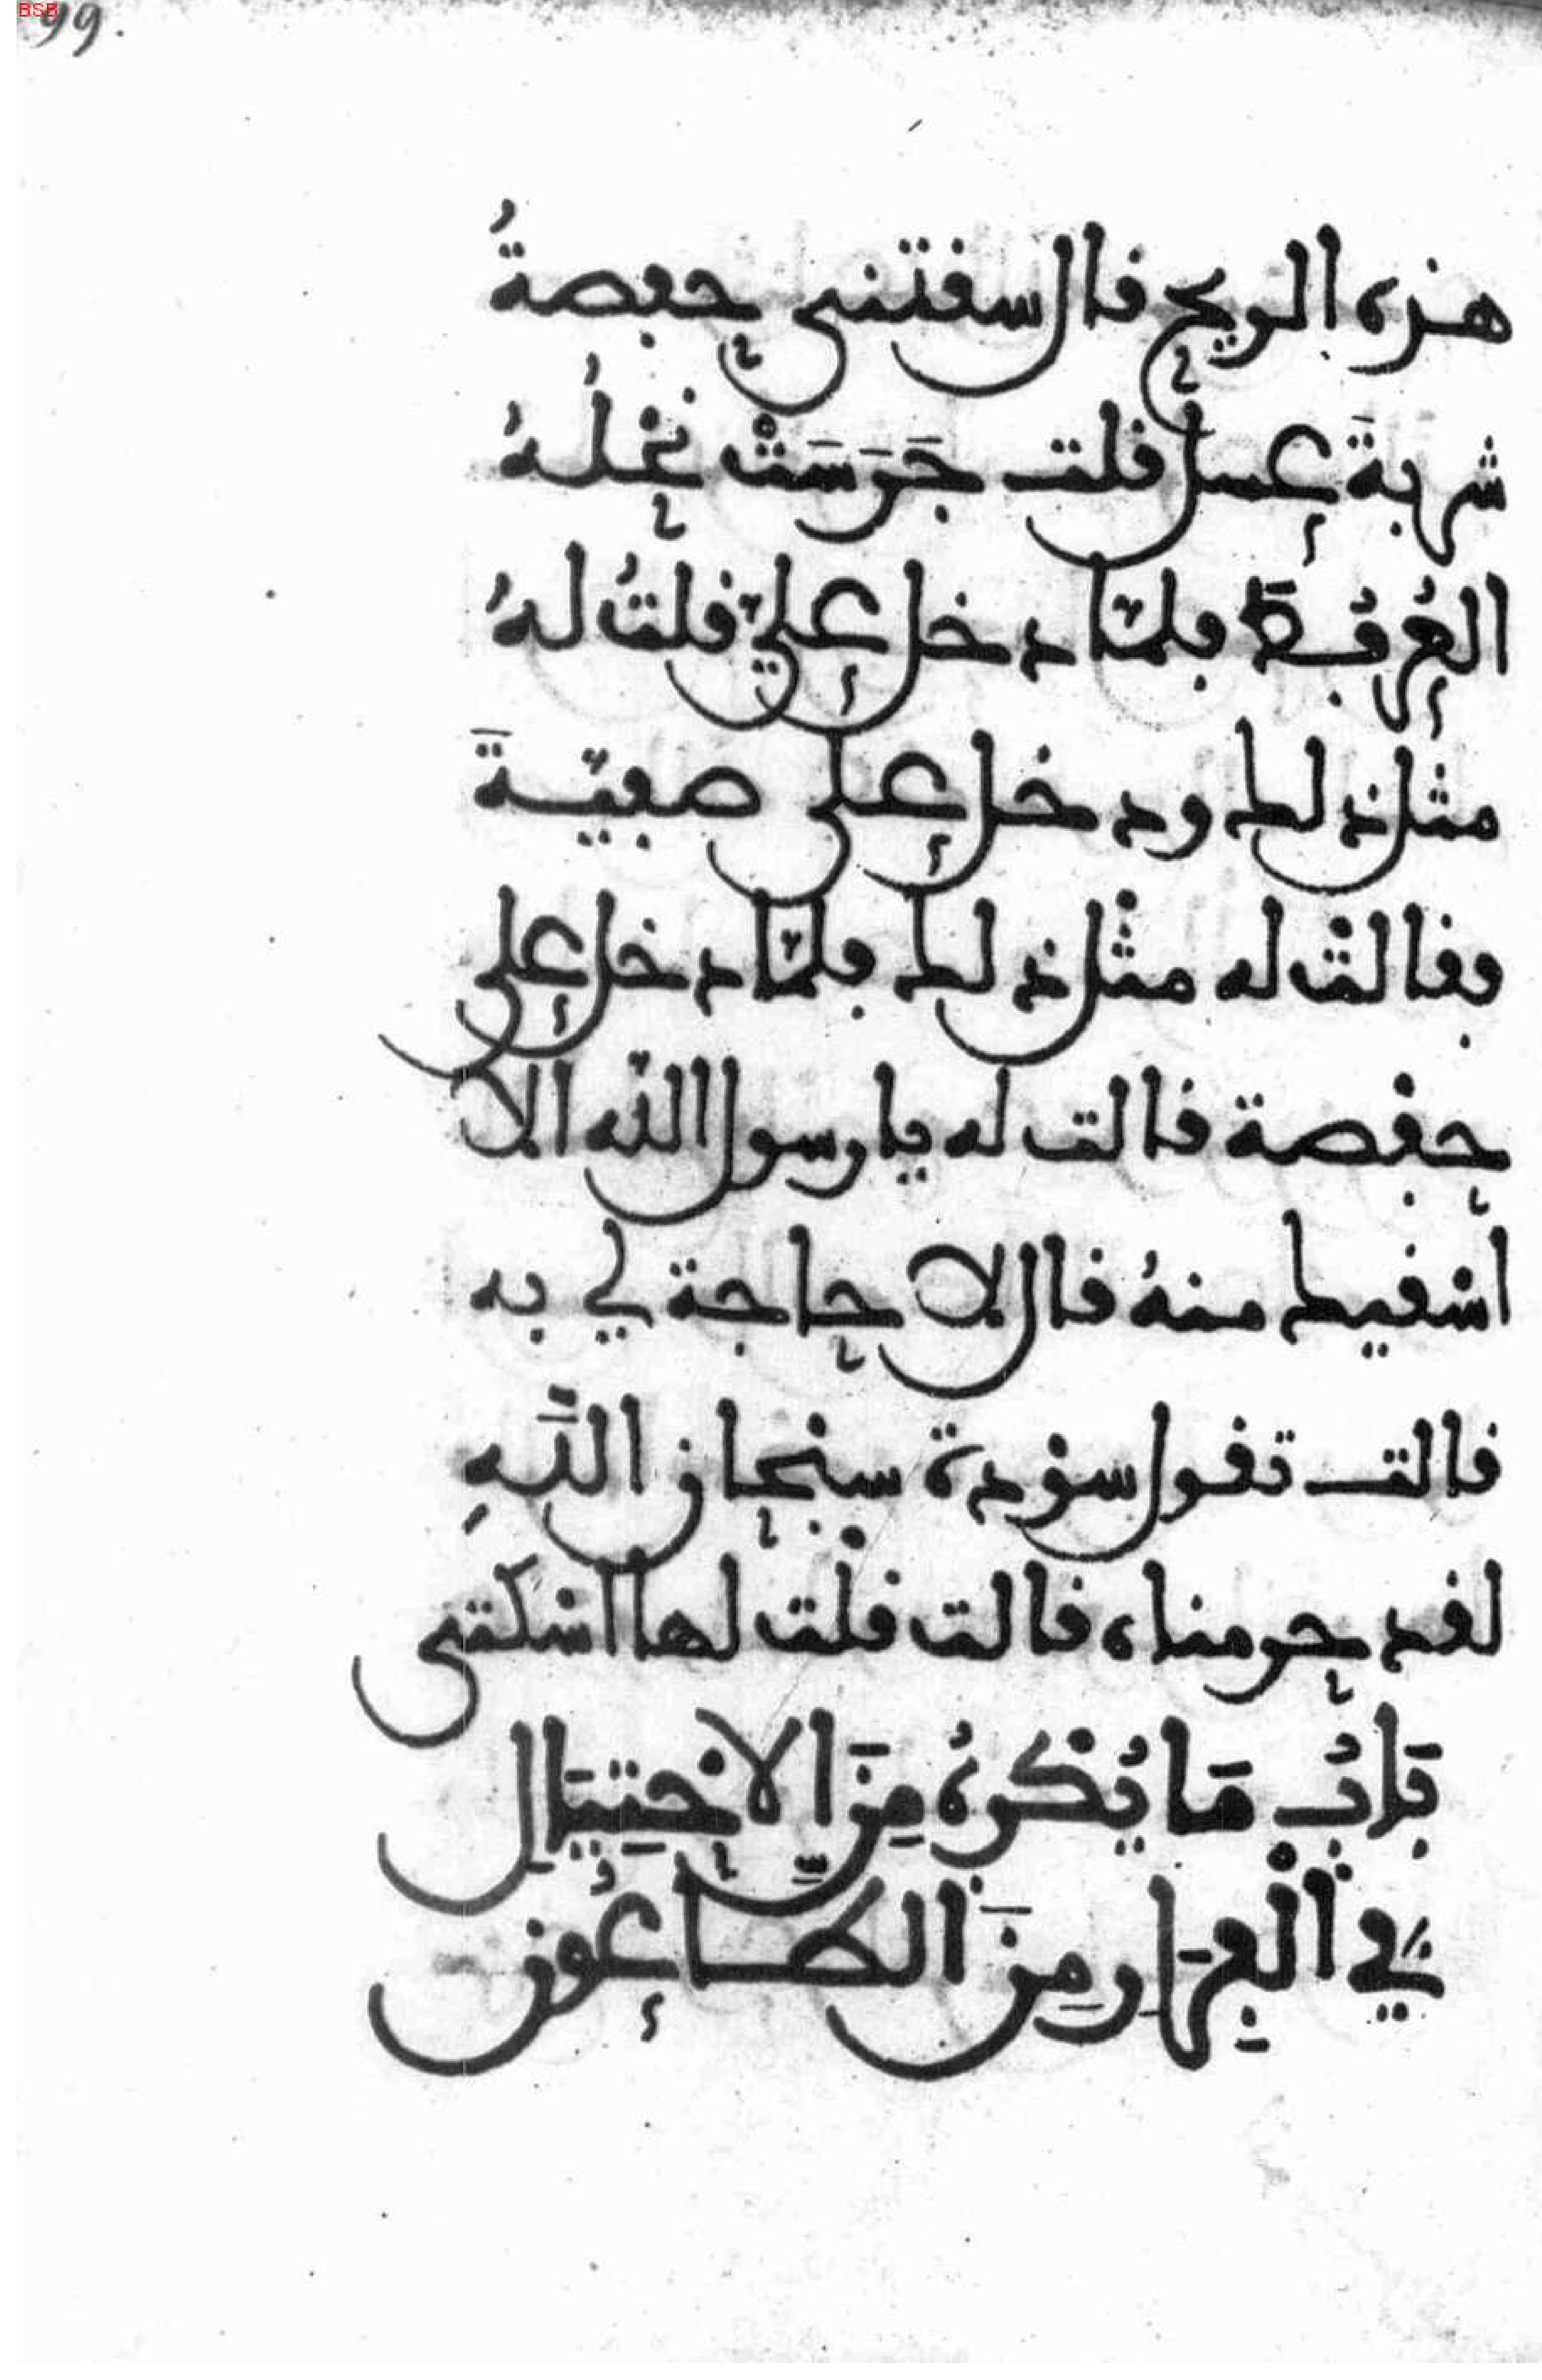 99.
هذه الريح قال سقتنى حفصةُ
شربةَ عسل قلت جَرَسَتْ نحْلُهُ
العُرفُطَ فلمّا دخل عليّ قلتُ لهُ
مثل ذلك ودخل على صفيّةَ
فقالتْ له مثْل ذلك فلمّا دخل على
حفْصة قالت له يا رسول الله الا
اسْقيك منهُ قال لا حاجة لي به
قالت تقول سوْدة سبْحان اللَّهِ
لقد حرمناه قالت قلْت لها اسْكتى
بَابُ مَا يُكْرهُ مِنَ الاِحْتِيَالِ
في الْفِرَارِ مِنَ الطَّاعُونِ